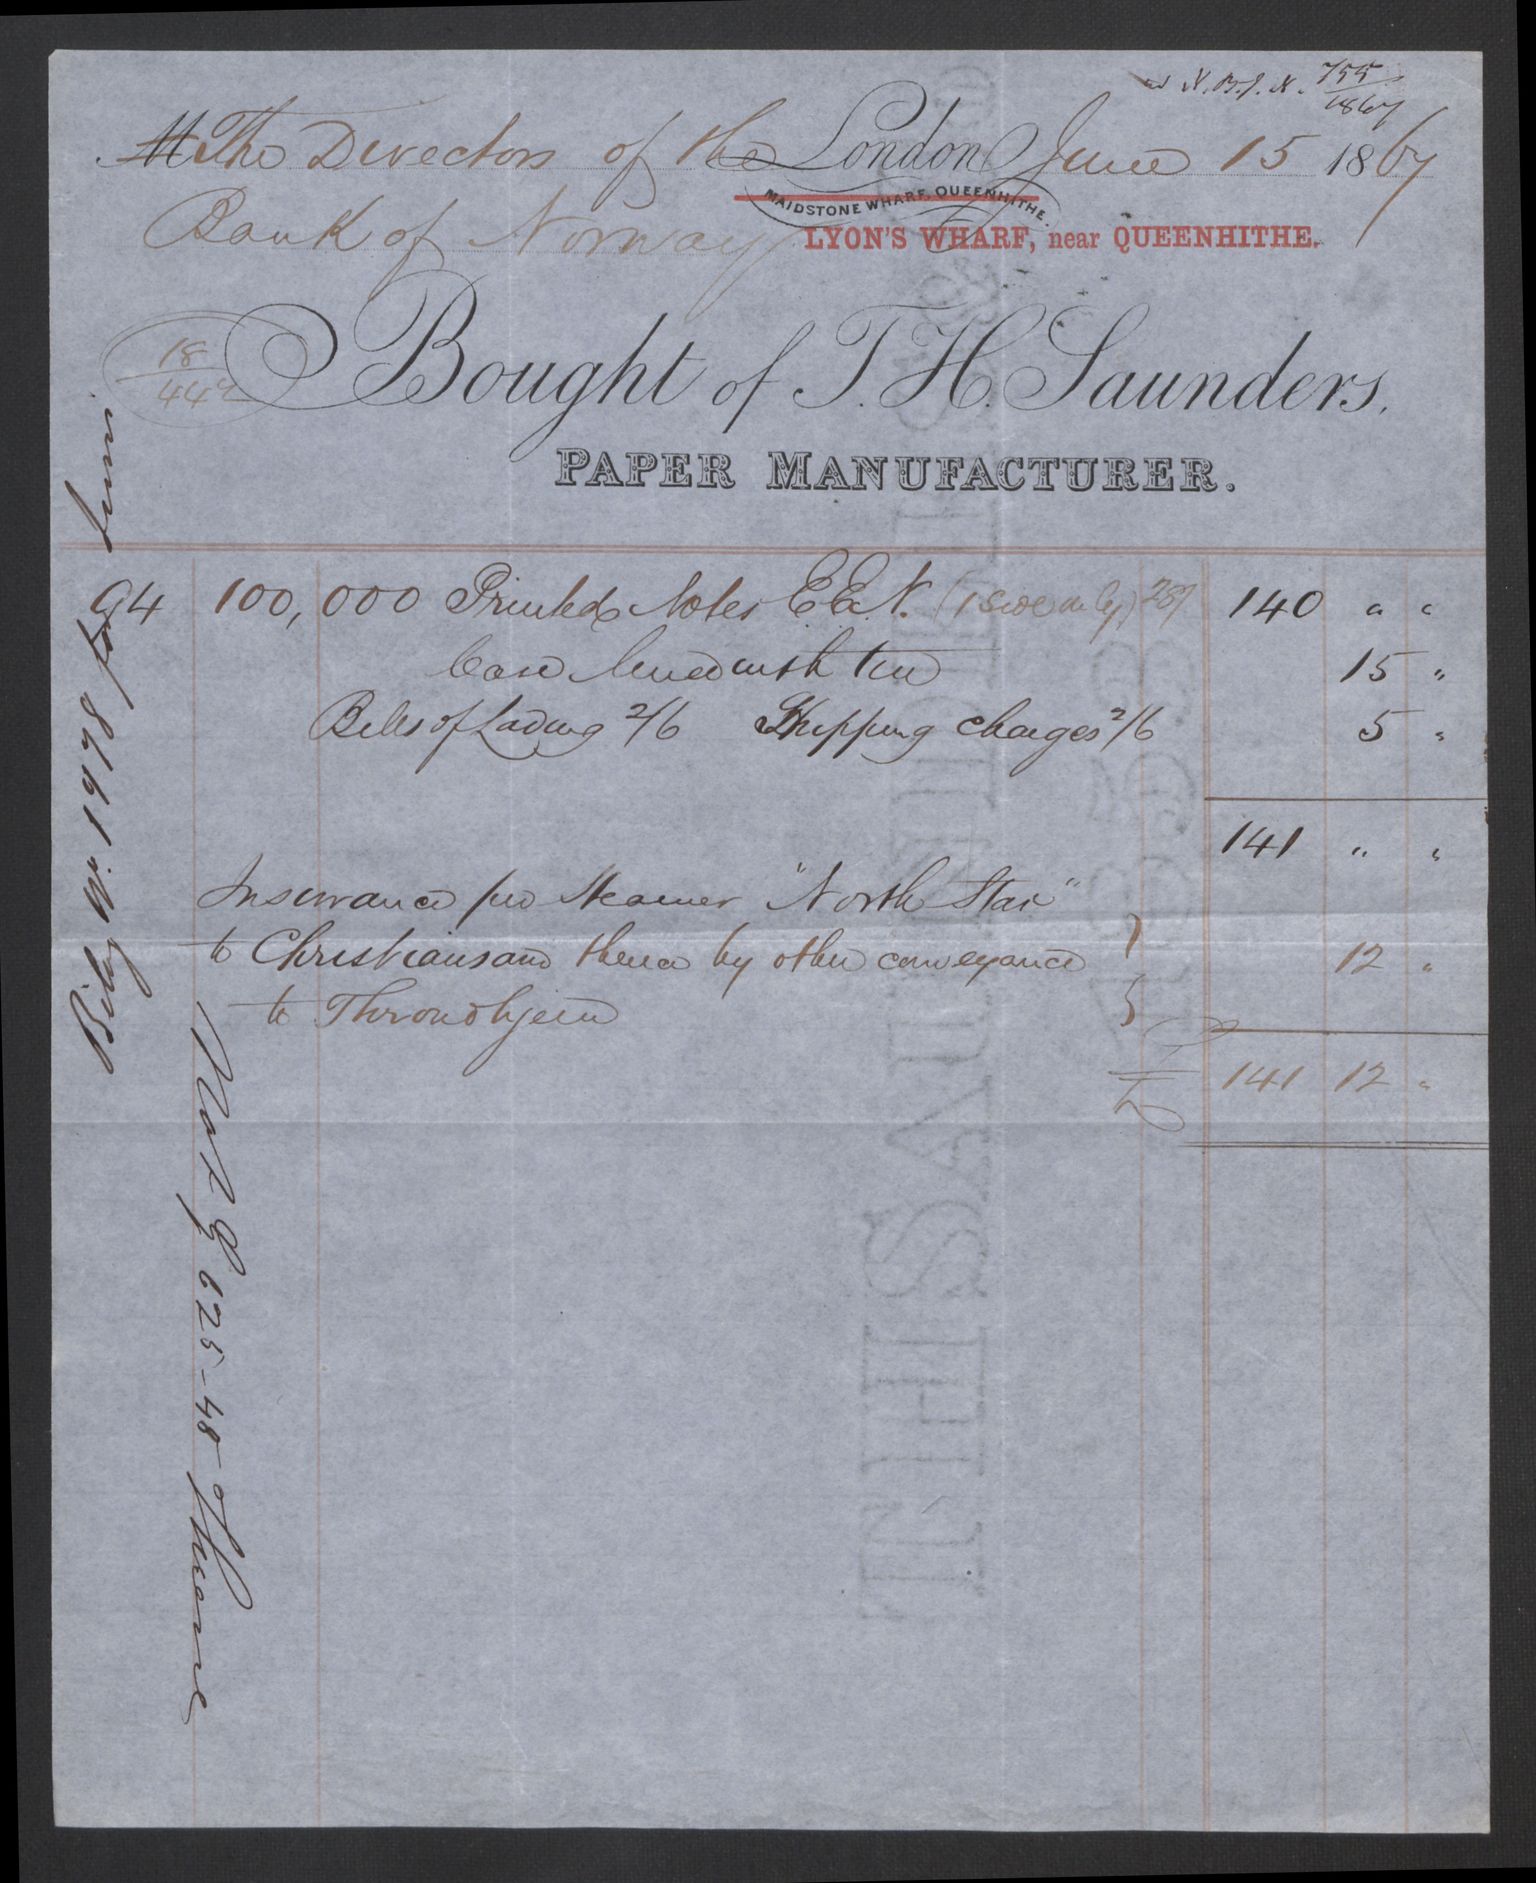 N.B.J.N. 755/1867
M The Directors of the London June 15 1867
MAIDSTONE WHARF, QUEENHITHE.
Bank of Norway LYON'S WHARF, near QUEENHITHE.
18/442
Bought of T. H. Saunders.
PAPER MANUFACTURER.
94 100,000 Printed Notes E.E.N. (1 side only) 28/ 140 " "
Case lined with tin 15 "
Bills of Lading 2/6 Shipping charges 2/6 5 "
141 " "
Insurance per Steamer "North Star"
to Christiansand thence by other conveyance 12 "
to Throndhjem
£ 141 12 "
Bilag No. 1978 for Juni